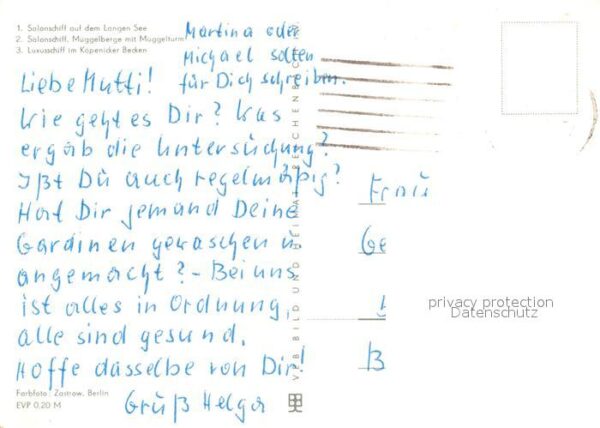 1. Salonschiff auf dem Langen See
2. Salonschiff, Müggelberge mit Müggelturm
3. Luxusschiff im Köpenicker Becken
Martina oder
Michael sollen
für Dich schreiben.
Liebe Mutti!
Wie geht es Dir? Was
ergab die Untersuchung?
Ißt Du auch regelmäßig?
Hat Dir jemand Deine
Gardinen gewaschen u
angemacht? - Bei uns
ist alles in Ordnung,
alle sind gesund.
Hoffe dasselbe von Dir!
Gruß Helga
Farbfoto: Zastrow, Berlin
EVP 0,20 M
VEB BILD UND HEIMAT REICHENBACH
Frau
Ge
B
privacy protection
Datenschutz